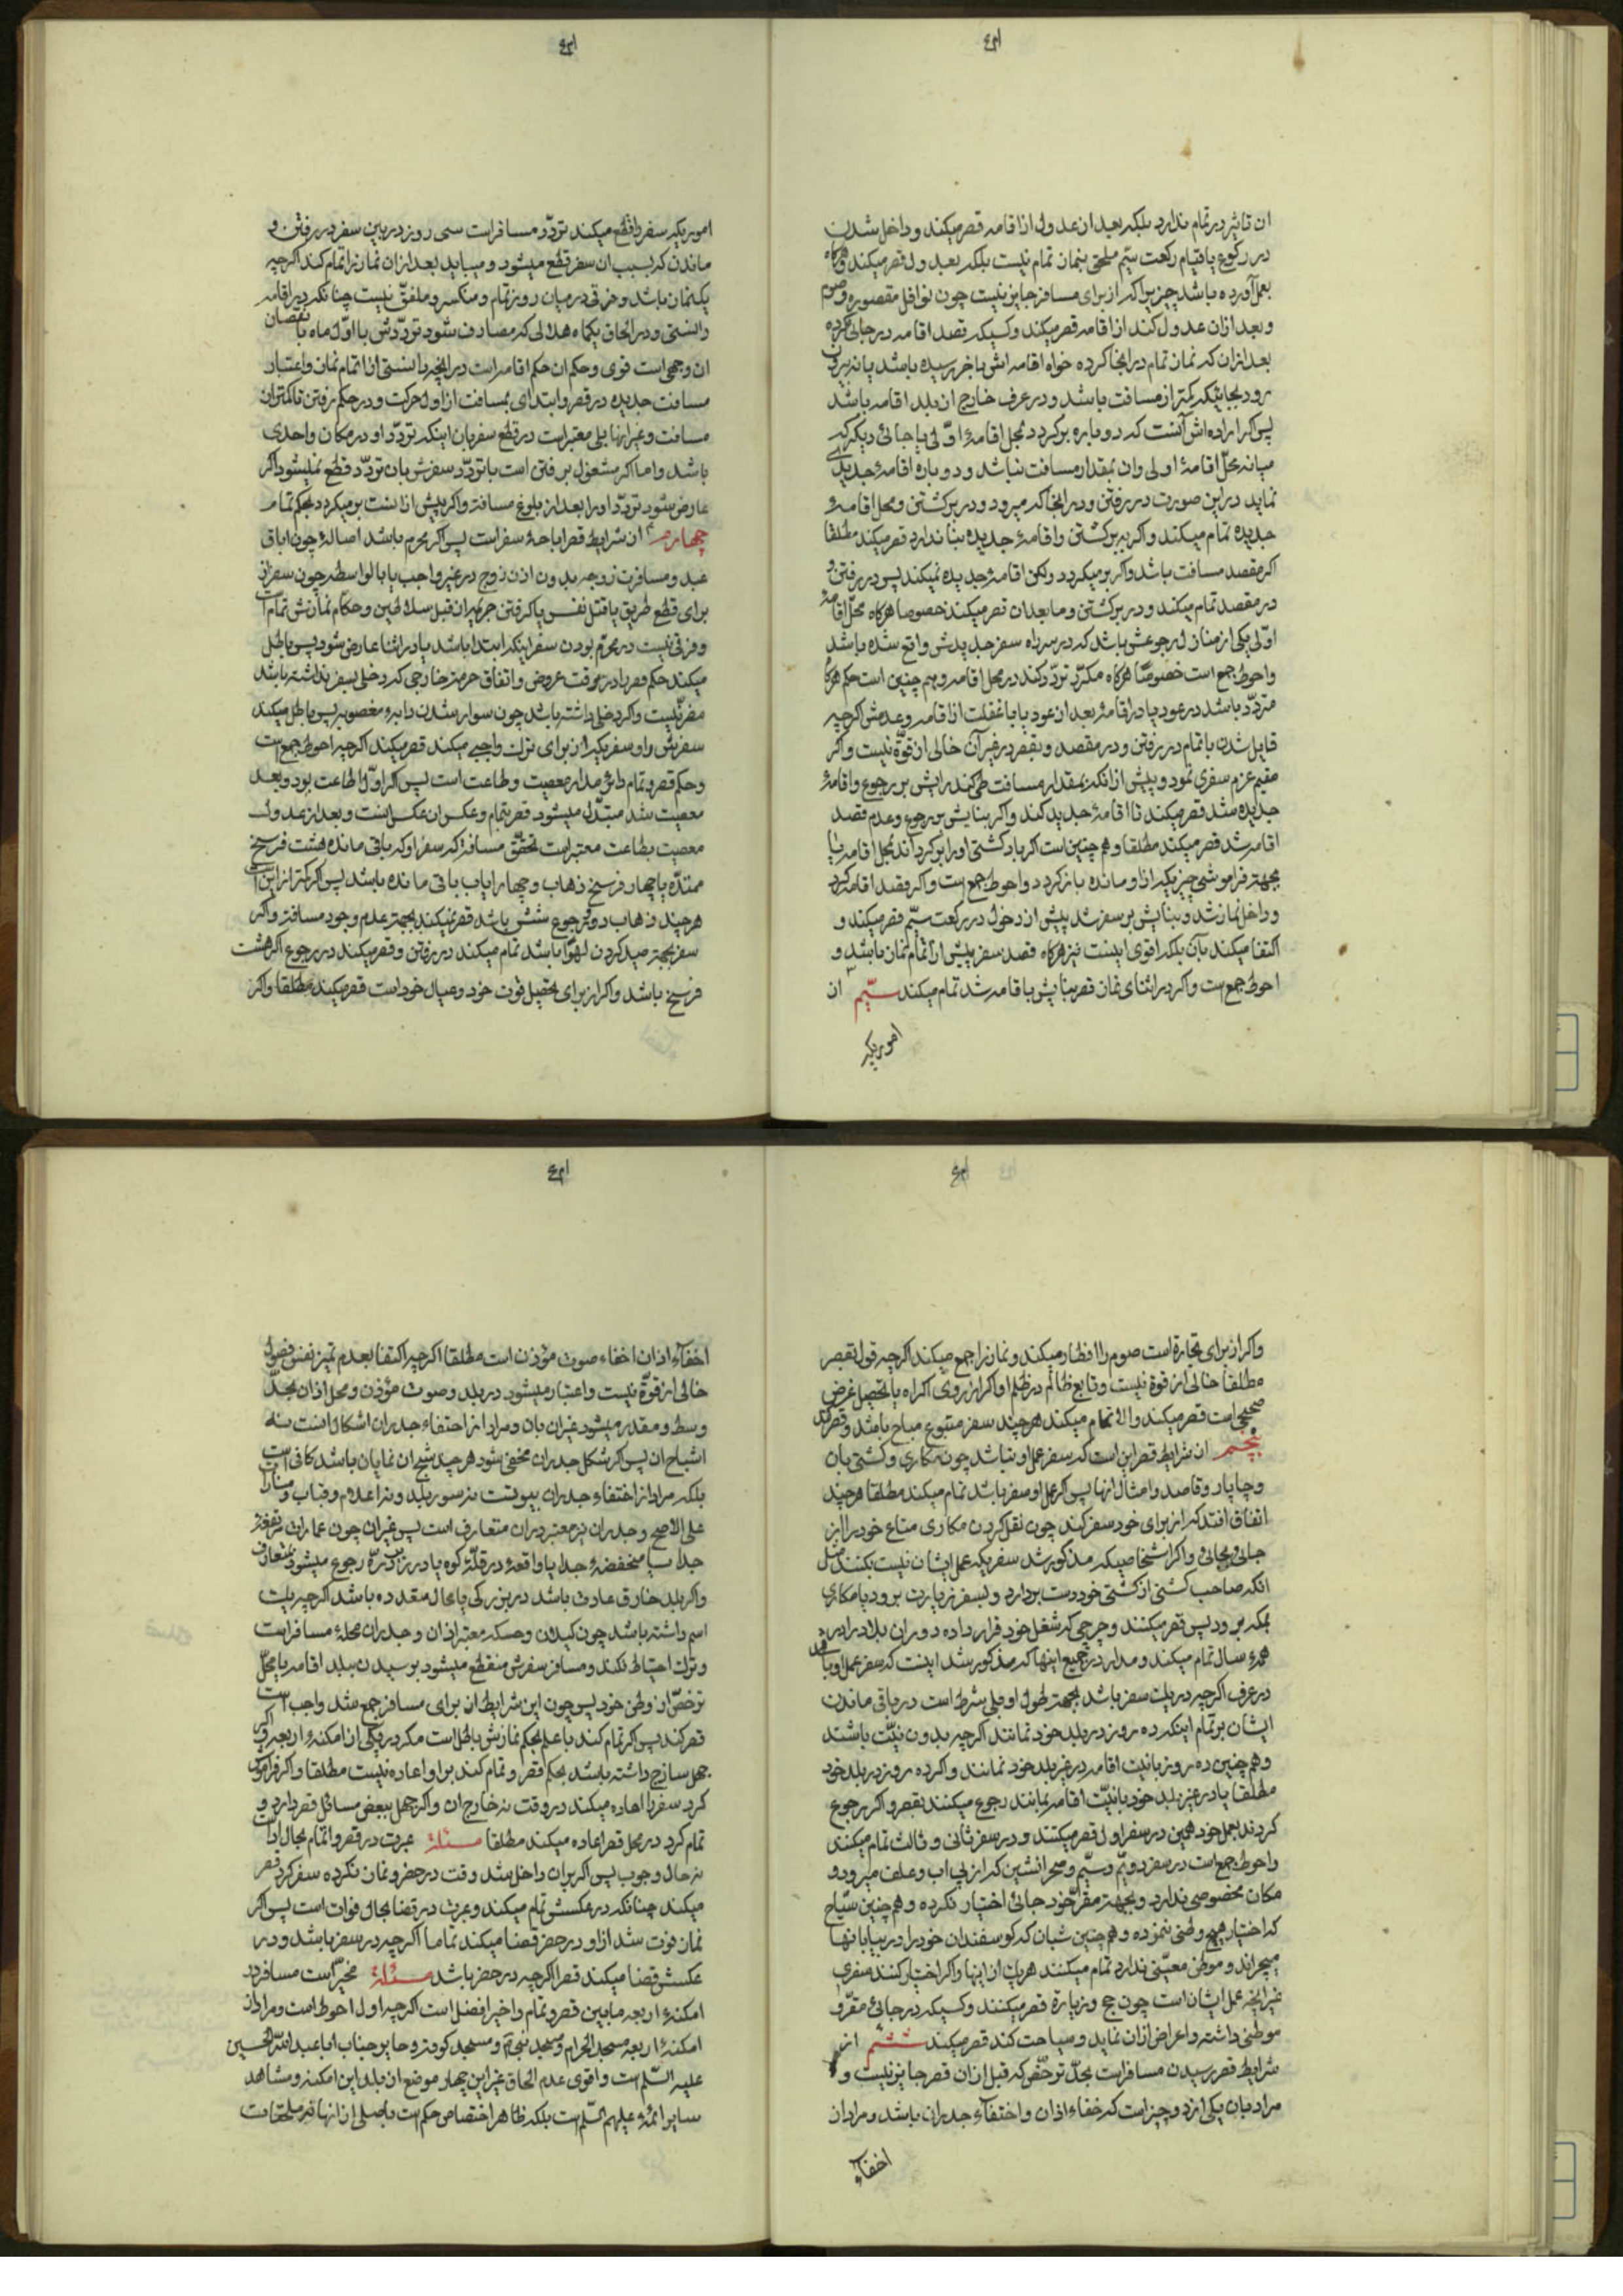 ان تاثیر در تمام ندارد بلکه بعد ان عدول از اقامه قصر میکند و داخل شدن
در رکوع یا قیام رکعت سیّم ملحق بنمان تمام نیست بلکه بعدول قصر میکند و هرگاه
بعمل آورده باشد چیزیرا که از برای مسافر جایز نیست چون نوافل مقصوره و صوم
و بعد ازان عدول کند از اقامه قصر میکند و کسیکه قصد اقامه در جائی کرده
بعد ازان که نمان تمام در انجا کرده خواه اقامه اش باخر رسیده باشد یا نه بیرون
رود بجائیکه کمتر از مسافت باشد و در عرف خارج ان بلد اقامه باشد
پس اکر اراده اش آنست که دوباره برکردد بمحل اقامهٔ اوّلی یا جائی دیکر که
میانه محلّ اقامهٔ اولی وان بمقدار مسافت نباشد و دوباره اقامهٔ جدیدی
نماید در این صورت در رفتن و در انجا که میرود و در برکشتن و محل اقامهٔ
جدیده تمام میکند و اکر بر برکشتن و اقامهٔ جدیده بنا ندارد قصر میکند مطلقا
اکر مقصد مسافت باشد و اکر بر میکردد ولکن اقامهٔ جدیده نمیکند پس در رفتن و
در مقصد تمام میکند و در برکشتن و ما بعد ان قصر میکند خصوصا هرکاه محلّ اقامهٔ
اوّلی یکی از منازل رجوعش باشد که در سر راه سفر جدیدش واقع شده باشد
و احوط جمع است خصوصًا هرکاه مکرّر تردّد کند در محل اقامه و هم چنین است حکم هرکاه
متردّد باشد در عود یا در اقامهٔ بعد ان عود یا با غفلت از اقامه و عدمش اکرچه
قایل شدن باتمام در رفتن و در مقصد و بقصر در غیر آن خالی از قوّة نیست و اکر
مقیم عزم سفری نمود و پیش از انکه بمقدار مسافت طی کند رایش بر رجوع و اقامهٔ
جدیده شد قصر میکند تا اقامهٔ جدید کند و اکر بنایش بر رجوع و عدم قصد
اقامه شد قصر میکند مطلقا و هم چنین است اکر باد کشتی او را برکرداند بمحل اقامه یا
بجهة فراموشی چیزیکه از او مانده باز کردد و احوط جمع است و اکر قصد اقامه کرد
و داخل نماز شد و بنایش بر سفر شد پیش از دخول در رکعت سیّم قصر میکند و
اکتفا میکند بآن بلکه اقوی اینست نیز هرکاه قصد سفر پیش از اتمام نمان باشد و
احوط جمع است و اکر در اثنای نمان قصر بنایش باقامه شد تمام میکند سیّم ان
اموریکه
اموریکه سفر را قطع میکند تردّد مسافر است سی روز در بین سفر در رفتن و
ماندن که بسبب ان سفر قطع میشود و میباید بعد ازان نمان را تمام کند اکرچه
یک نمان باشد و فرقی در میان روز تمام و منکسر و ملفّق نیست چنانکه در اقامه
دانستی و در الحاق یکماه هلالی که مصادف شود تردّدش با اوّل ماه با نقصان
ان وجهی است قوی و حکم ان حکم اقامه است در انچه دانستی از اتمام نمان و اعتبار
مسافت جدیده در قصر و ابتدای بمسافت از اول حرکت و در حکم رفتن تا کمتر ان
مسافت و غیر انها بلی معتبر است در قطع سفر بان اینکه تردّد او در مکان واحدی
باشد و اما اکر مشغول برفتن است با تردّد سفرش بان تردّد قطع نمیشود اکر
عارض شود تردّد او را بعد از بلوغ مسافت و اکر پیش از انست بر میکردد بحکم تمام
چهارم ان شرایط قصر اباحهٔ سفر است پس اکر محرم باشد اصالة چون اباق
عبد و مسافرت زوجه بدون اذن زوج در غیر واجب یا بالواسطه چون سفر ان
برای قطع طریق یا قتل نفس یا کرفتن جریمه ان قبل سلاطین و حکام نمازش تمام است
و فرقی نیست در محرّم بودن سفر اینکه ابتدا باشد یا در اثنا عارض شود پس باطل
میکند حکم قصر را در وقت عروض و اتفاق حرمة خارجی که دخلی بسفر نداشته باشد
مضر نیست و اکر دخلی داشته باشد چون سوار شدن دابهٔ مغصوبه پس باطل میکند
سفرش را و سفریکه از برای ترك واجبی میکند قصر میکند اکرچه احوط جمع است
و حکم قصر و تمام دائر مدار معصیت و طاعت است پس اکر اوّل طاعت بود و بعد
معصیت شد مبتدّل میشود قصر بتمام و عکس ان عکس انست و بعد از عدول
معصیت بطاعت معتبر است تحقّق مسافة که سفر او که باقی مانده هشت فرسخ
ممتدّه یا چهار فرسخ ذهاب و چهار ایاب باقی مانده باشد پس اکر کمتر از این است
هرچند ذهاب دو و رجوع شش باشد قصر نمیکند بجهة عدم وجود مسافة و اکر
سفر بجهة صید کردن لهوًا باشد تمام میکند در رفتن و قصر میکند در رجوع اکر هشت
فرسخ باشد و اکر از برای تحصیل قوت خود و عیال خود است قصر میکند مطلقا و اکر
و اکر از برای تجارة است صوم را افطار میکند و نمان را جمع میکند اکرچه قول بقصر
مطلقا خالی از قوة نیست و تابع ظالم در ظلم او اکر از روی اکراه یا تحصیل غرض
صحیحی است قصر میکند و الا تمام میکند هرچند سفر متبوع مباح باشد و قصر کند
پنجم ان شرایط قصر این است که سفر عمل او نباشد چون مکاری و کشتی بان
و چاپار و قاصد و امثال انها پس اکر عمل او سفر باشد تمام میکند مطلقا هرچند
اتفاق افتد که از برای خود سفر کند چون نقل کردن مکاری متاع خود را از
جائی بجائی و اکر اشخاصیکه مذکور شد سفریکه عمل ایشان نیست بکنند مثل
انکه صاحب کشتی از کشتی خود دست بردارد و بسفر زیارت برود یا مکاری
بمکه برود پس قصر میکنند و چرچی که شغل خود قرار داده دوران بلاد را در
همهٔ سال تمام میکند و مدار در جمیع اینها که مذکور شد اینست که سفر عمل او باشد
در عرف اکرچه در یک سفر باشد بجهة طول او بلی شرط است در باقی ماندن
ایشان بر تمام اینکه ده روز در بلد خود نمانند اکرچه بدون نیّت باشند
و هم چنین ده روز با نیت اقامه در غیر بلد خود نمانند و اکر ده روز در بلد خود
مطلقا یا در غیر بلد خود با نیّت اقامه بمانند رجوع میکنند بقصر و اکر رجوع
کردند بعمل خود همین در سفر اول قصر میکنند و در سفر ثانی و ثالث تمام میکنند
و احوط جمع است در سفر دویّم و سیّم و صحرانشین که از پی اب و علف میرود و
مکان مخصوصی ندارد و بجهة مقرّ خود جائی اختیار نکرده و هم چنین سیّاح
که اختیار هیچ وطنی ننموده و هم چنین شبان که کوسفندان خود را در بیابانها
میچراند و موطن معیّنی ندارد تمام میکنند هر یك از اینها و اکر اختیار کنند سفری
غیر انچه عمل ایشان است چون حج و زیارة قصر میکنند و کسیکه در جائی مقرّ و
موطنی داشته و اعراض ازان نماید و سیاحت کند قصر میکند ششم از
شرایط قصر رسیدن مسافر است بحدّ ترخّص که قبل ازان قصر جایز نیست و
مراد بان یکی از دو چیز است که خفاء اذان و اختفاء جدران باشد و مراد ان
اخفآء
اخفآء اذان اخفاء صوت مؤذن است مطلقا اکرچه اکتفا بعدم تمیز نفس فصول
خالی از قوّة نیست و اعتبار میشود در بلد و صوت مؤذن و محل اذان بحدّ
وسط و مقدر میشود غیر ان بان و مراد از اختفاء جدران اشکال انست نه
اشباح ان پس اکر شکل جدران مخفی شود هرچند شبح ان نمایان باشد کافی است
بلکه مراد از اختفاء جدران بیوتست نه سور بلد و نه اعلام و قباب و منار
علی الاصح و جدران نیز معتبر در ان متعارف است پس غیر ان چون عمارات مرتفعهٔ
جدا یا منخفضهٔ جدا یا واقعهٔ در قلّهٔ کوه یا در نزد درّه رجوع میشود بمتعارف
و اکر بلد خارق عادت باشد در بزرکی یا محال متعدده باشد اکرچه یک
اسم داشته باشد چون کیلان و حسکه معتبر اذان و جدران محلهٔ مسافر است
و ترك احتیاط نکند و مسافر سفرش منقطع میشود برسیدن ببلد اقامه یا محلّ
ترخّص از وطن خود پس چون این شرایط ان برای مسافر جمع شد واجب است
قصر کند پس اکر تمام کند با علم بحکم نمازش باطل است مکر در یکی از امکنهٔ اربعه و اکر
جهل ساذج داشته باشد بحکم قصر و تمام کند بر او اعاده نیست مطلقا و اکر فراموش
کرد سفر را اعاده میکند در وقت نه خارج ان و اکر جهل ببعض مسائل قصر دارد و
تمام کرد در محل قصر اعاده میکند مطلقا مسئلة عبرت در قصر و اتمام بحال ادا است
نه حال وجوب پس اکر بر ان داخل شد وقت در حضر و نمان نکرده سفر کرد قصر
میکند چنانکه در عکسش تمام میکند و عبرت در قضا بحال فوات است پس اکر
نمان فوت شد از او در حضر قضا میکند تماما اکرچه در سفر باشد و در
عکسش قضا میکند قصرا اکرچه در حضر باشد مسئلة مخیّر است مسافر در
امکنهٔ اربعه مابین قصر و تمام و اخیر افضل است اکرچه اول احوط است و مراد ان
امکنهٔ اربعهٔ مسجد الحرام و مسجد نبیّ و مسجد کوفه و حایر جناب ابا عبد الله الحسین
علیه السّلم است و اقوی عدم الحاق غیر این چهار موضع ان بلد این امکنه و مشاهد
سایر ائمهٔ علیهم السّلم است بلکه ظاهرا اختصاص حکم است باصلی از انها نه ملحقات